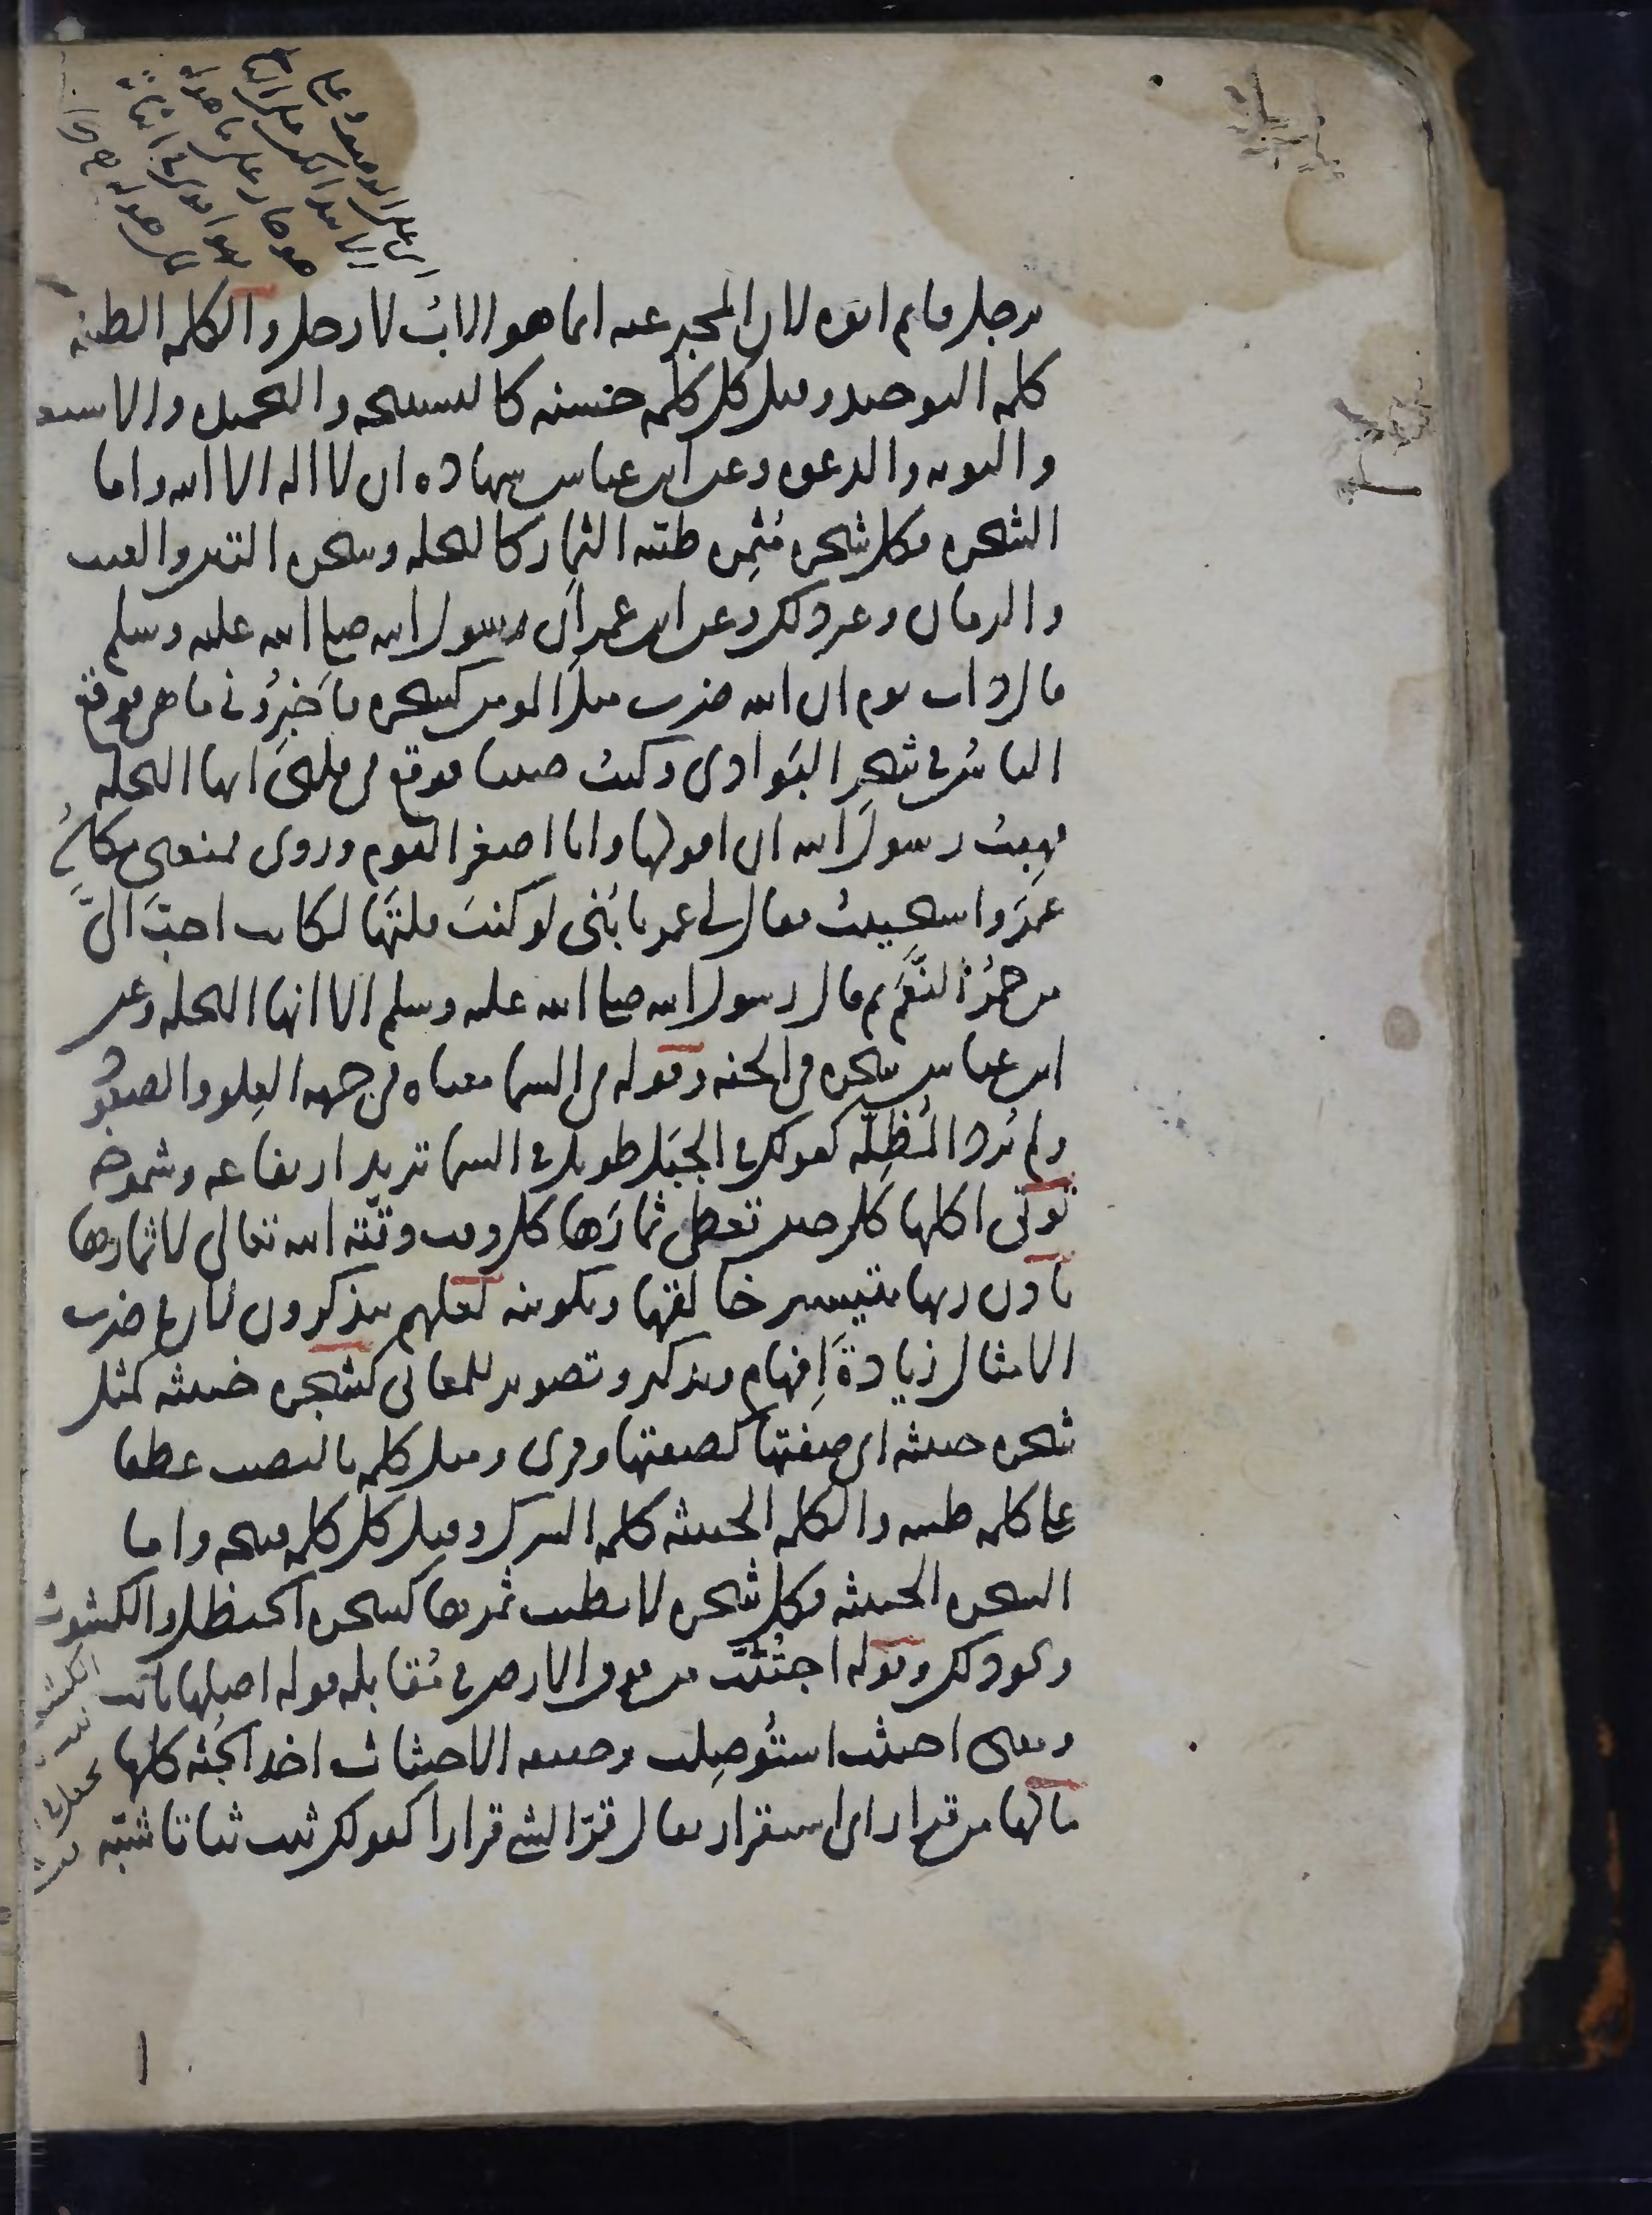 برجل قايم ابوه لان المخبر عنه انما هو الابُ لا رجل والكلمة الطيبة
كلمة التوحيد وقيل كل كلمة حسنة كالتسبيحة والتحميدة والاستغ
والتوبة والدعوة وعن ابن عباس شهادة ان لا اله الا الله واما
الشجرة فكل شجرة مُثمِرة طيّبة الثمار كالنخلة وشجرة التين والعنب
والرمان وغير ذلك وعن ابن عمر ان رسول الله صلى الله عليه وسلم
قال ذات يوم ان الله ضرب مثل المومن كشجرة فاخبِرُوني ما هي فوقع
الناسُ في شجر البَوادي وكنتُ صبيا فوقع في قلبي انها النخلة
فهِبتُ رسولَ الله ان اقولها وانا اصغر القوم وروى فمنعني مكانُ
عمَر واستحييتُ فقال لي عمر يا بُنَي لو كنتَ قلتَها لكانت احبّ اليَّ
من حُمْر النَّعَم ثم قال رسول الله صلى الله عليه وسلم الا انها النخلة وعن
ابن عباس شجرة في الجنة وقوله في السما معناه في جهة العِلو والصعود
ولم يُرد المُظِلّة كقولك في الجبَل طويل في السما تريد ارتفاعه وشموخه
تؤتي اكلها كل حين تعطي ثمارَها كل وقت وقّته الله تعالى لاثمارها
باذن ربها بتيسير خالقها وتكوينه لعلهم يتذكرون لان في ضرب
الامثال زيادةَ اِفهام وتذكير وتصوير للمعاني كشجرة خبيثة كمثل
شجرة خبيثة اي صفتها كصفتها وقرى ومثل كلمة بالنصب عطفا
على كلمة طيبة والكلمة الخبيثة كلمة الشرك وقيل كل كلمة قبيحة واما
الشجرة الخبيثة فكل شجرة لا يطيب ثمرها كشجرة الحنظل والكشوث
ونحو ذلك وقوله اجتُثّت من فوق الارض في مُقابلة قوله اصلها ثابت
ومعنى اجتثت استُوصِلت وحقيقة الاجتثاث اخذ الجُثة كلها
ما لها من قرار اى استقرار يقال قرّ الشي قرارا كقولك ثبت ثباتا شبّه
١